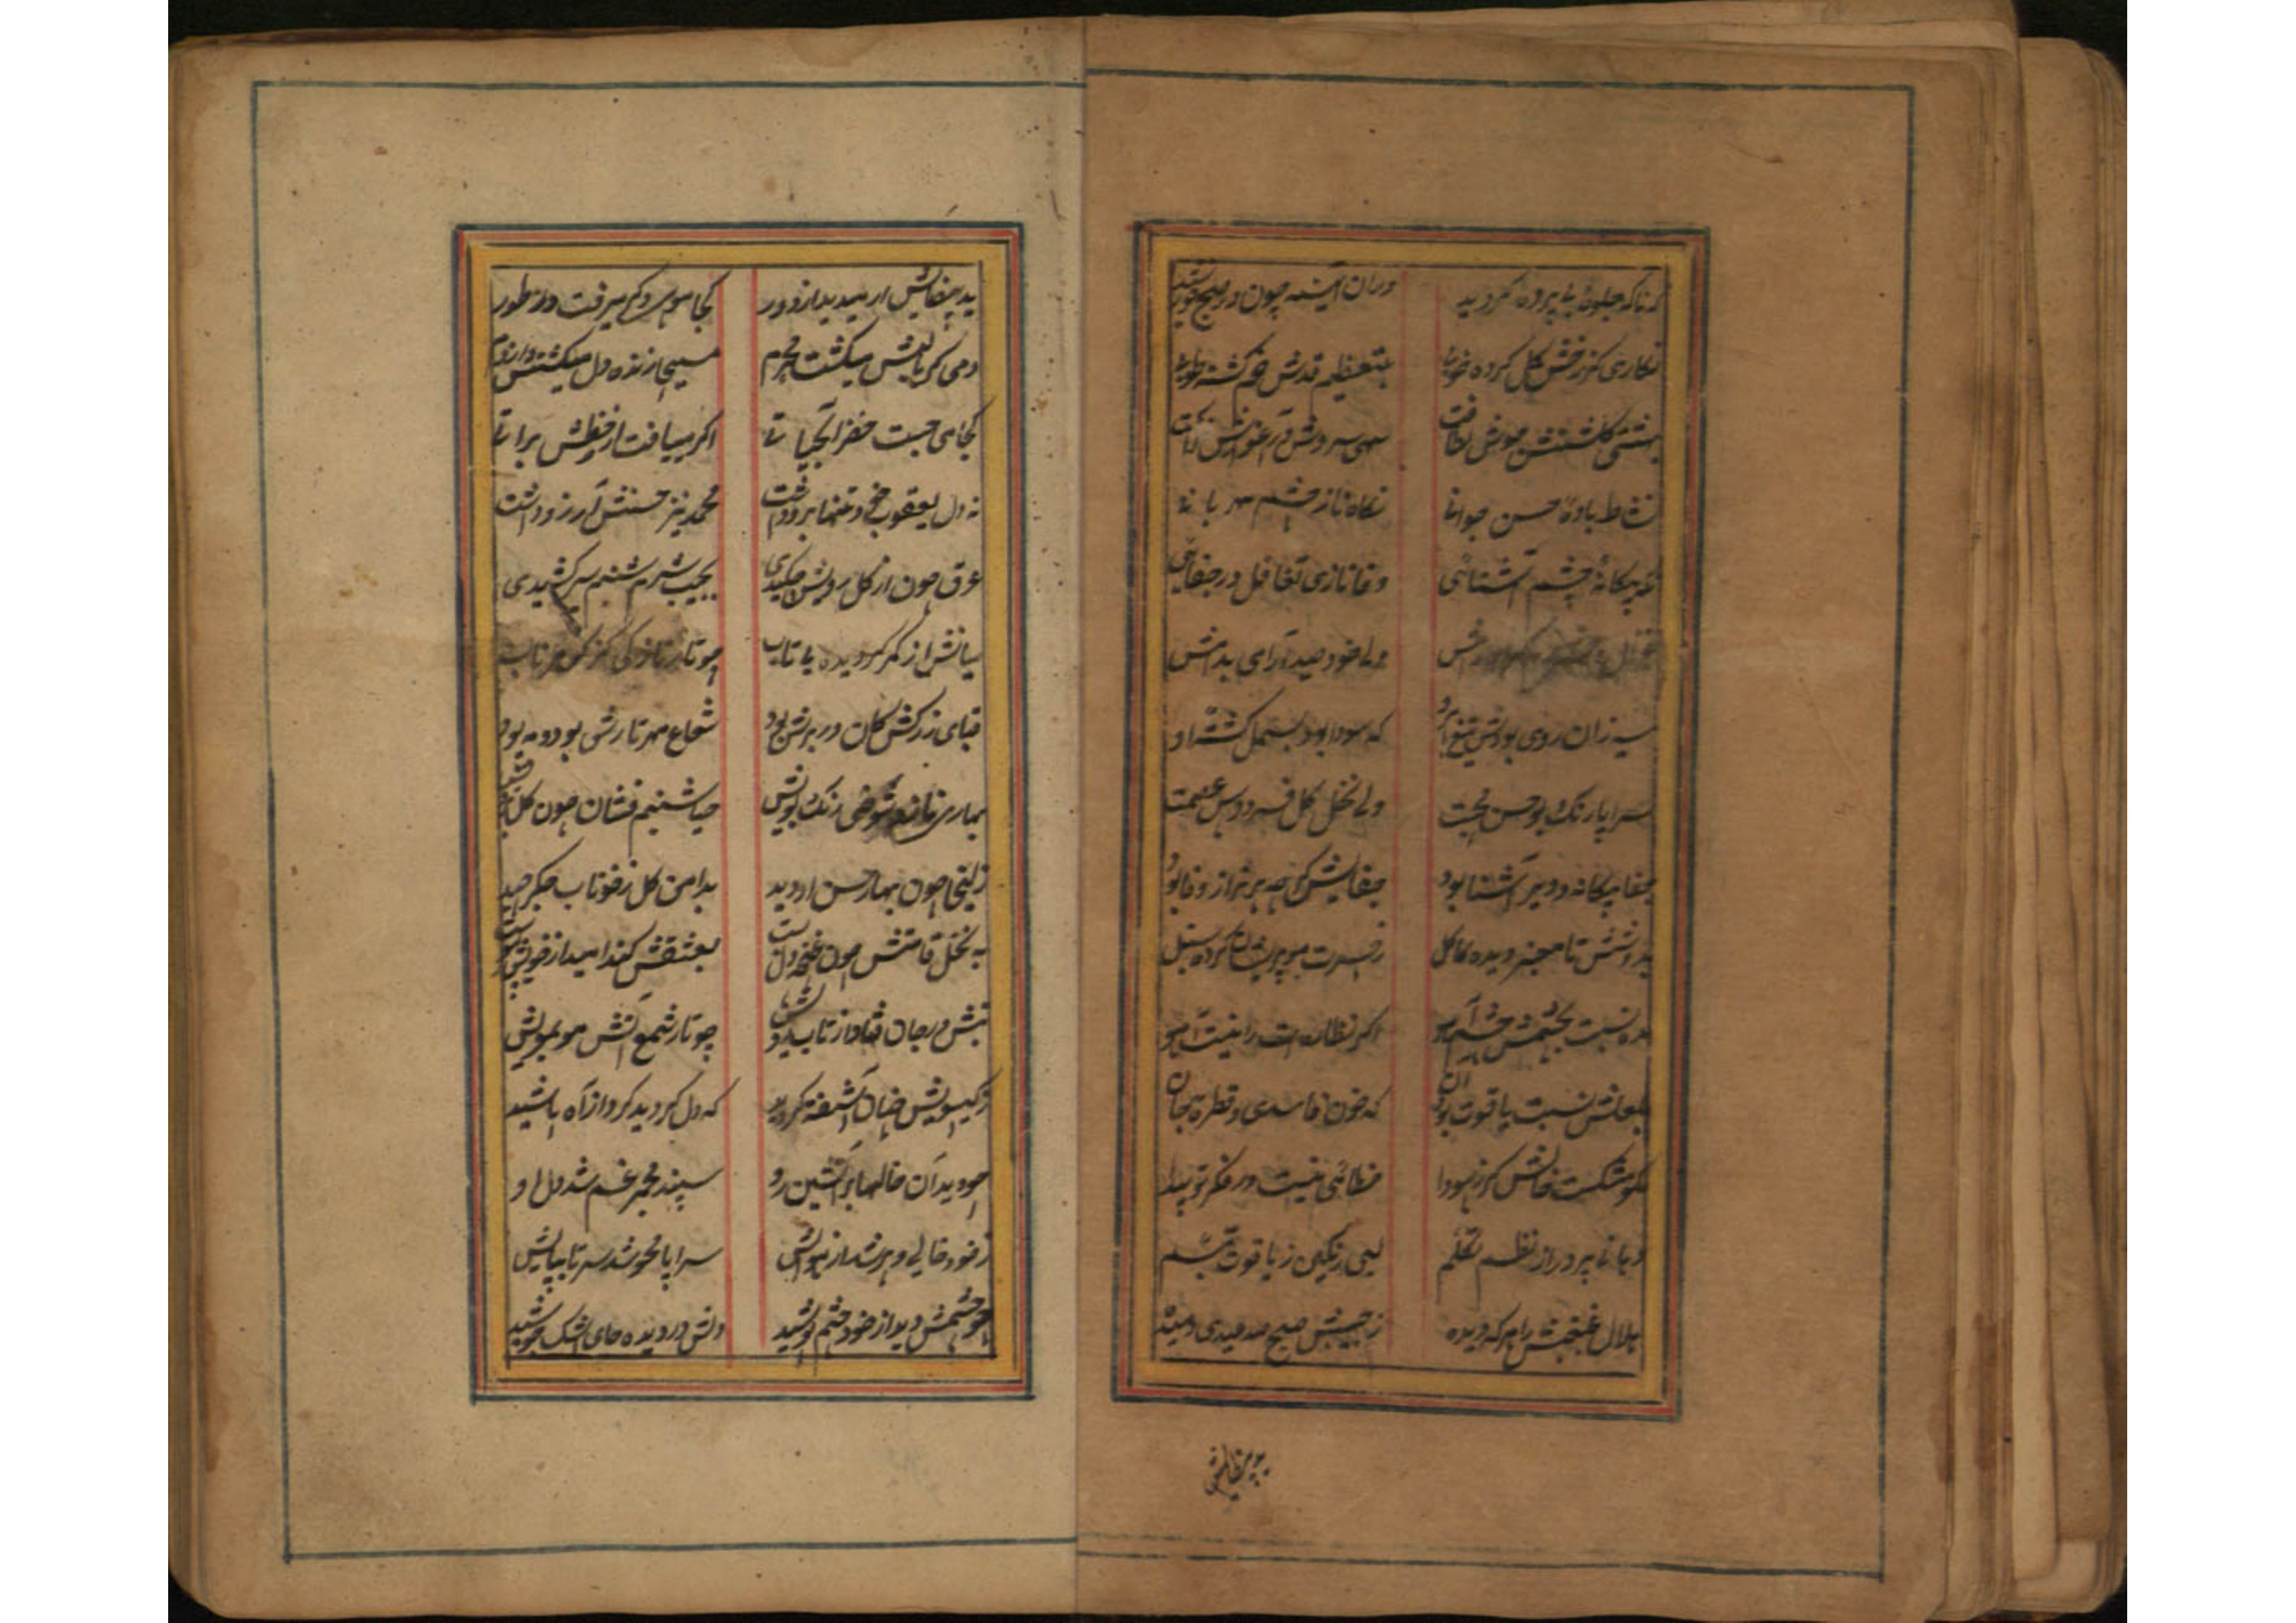 که ناکه جلوهٔ بی پرده کردید در ان آینه چون در صبح خورشید
نکاری کز رخش کل کرده خوبی بتعظیم قدش خم کشته طوبی
بهشتی کلشنش موش لطافت سهی سروش
نشاط بادهٔ حسن جوانی نکاه ناز چشم مهربانی
نکه بیکانهٔ چشم آشنائی وفا نازی تغافل در جفائی
ولی خود صید آرامی بدامش
سیه زان روی بودش تیغ ابرو که سودا بود بسمل کشته او
سراپا رنک بو حسن محبت ولی نخل کل فردوس عصمت
جفا بیکانه و دیر آشنا بود جفایش کرچه برتر از وفا بود
تا معجز دیده کاکل ز حسرت مو پریشان کرده سنبل
نسبت بچشمش چشم آهو اکر نظاره ات را نیست آهو
بلعلش نسبت یاقوت بود ان که خون فاسدی و قطرهٔ جان
مکو مشکست خالش کز سودا خطائی نیست در فکر تو پیدا
دهانی پر در از نظم تکلم لبی رنکین ز یاقوت تبسم
هلال غبغبش را هر که دیده ز جیبش صبح صد عیدی دمیده
ید بیضاش ار میدید از دور کجا موسی دکر میرفت در طور
دمی کر با لبش میکشت محرم مسیحا زنده دل میکشتش از دم
کجا می جست خضر آبحیاتی اکر مییافت از خطش براتی
نه دل یعقوب تنها برو داشت محمد نیز حسنش آرزو داشت
عرق چون از کل رویش چکیدی بجیب شرم شبنم سر کشیدی
میانش از کمر کردیده بی تاب چو تار نازکی کز
قبای زرکش کان در برش بود شعاع مهر تارش بود و مه پود
بهاری شوخی رنک بویش حیا شبنم فشان چون کل
زلیخا چون بهار حسن او دید بدامن کل ز خوناب جکر چید
به نخل قامتش چون غنچه دل بست بعشقش کند امید از خویش
تبش در جان فتاد از تاب رویش چو تار شمع آتش مو بمویش
ز کیسویش چنان آشفته کردید که دل کردید کرد از آه پاشید
چو دید آن خالها بر آتشین رو سپند مجمر غم شد دل او
ز خود خالی و پر شد از هوایش سراپا محو شد سر تا بپایش
چو چشمش دید از خود چشم پوشید دلش در دیده جای اشک جوشید